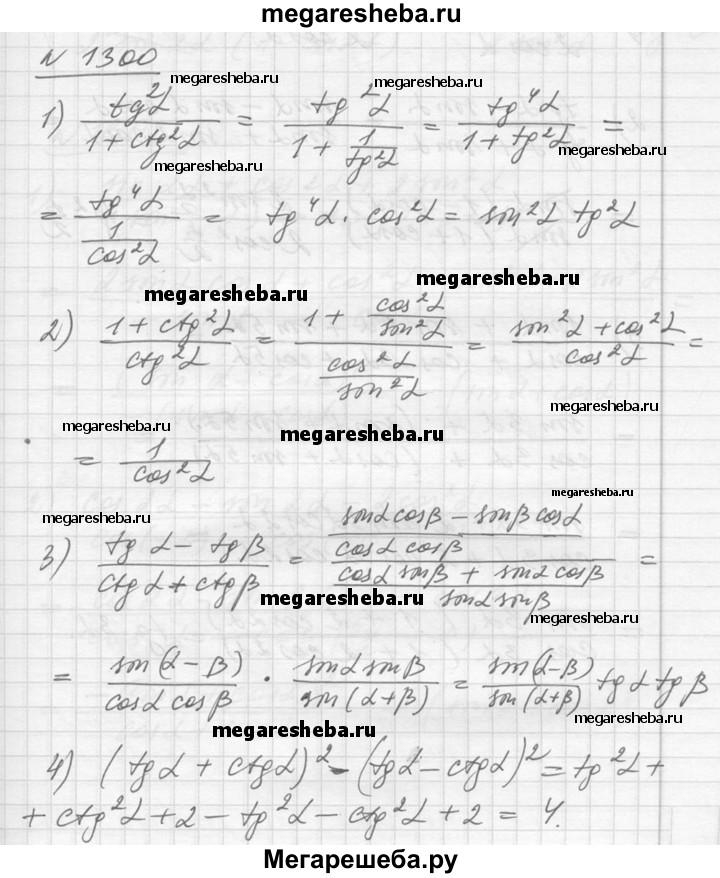 megaresheba.ru
N 1300
megaresheba.ru megaresheba.ru
1) tg²α / (1 + ctg²α) = tg²α / (1 + 1/tg²α) = tg⁴α / (1 + tg²α) =
megaresheba.ru megaresheba.ru
= tg⁴α / (1/cos²α) = tg⁴α · cos²α = sin²α tg²α
megaresheba.ru megaresheba.ru
2) (1 + ctg²α) / ctg²α = (1 + cos²α/sin²α) / (cos²α/sin²α) = (sin²α + cos²α) / cos²α =
megaresheba.ru megaresheba.ru megaresheba.ru
= 1 / cos²α
megaresheba.ru megaresheba.ru
3) (tg α - tg β) / (ctg α + ctg β) = ((sinα cosβ - sinβ cosα) / (cosα cosβ)) / ((cosα sinβ + sinα cosβ) / (sinα sinβ)) =
megaresheba.ru megaresheba.ru
= sin(α - β) / (cosα cosβ) · sinα sinβ / sin(α + β) = sin(α-β) / sin(α+β) tgα tgβ
megaresheba.ru megaresheba.ru
4) (tgα + ctgα)² - (tgα - ctgα)² = tg²α +
megaresheba.ru megaresheba.ru
+ ctg²α + 2 - tg²α - ctg²α + 2 = 4.
Мегарешеба.ру